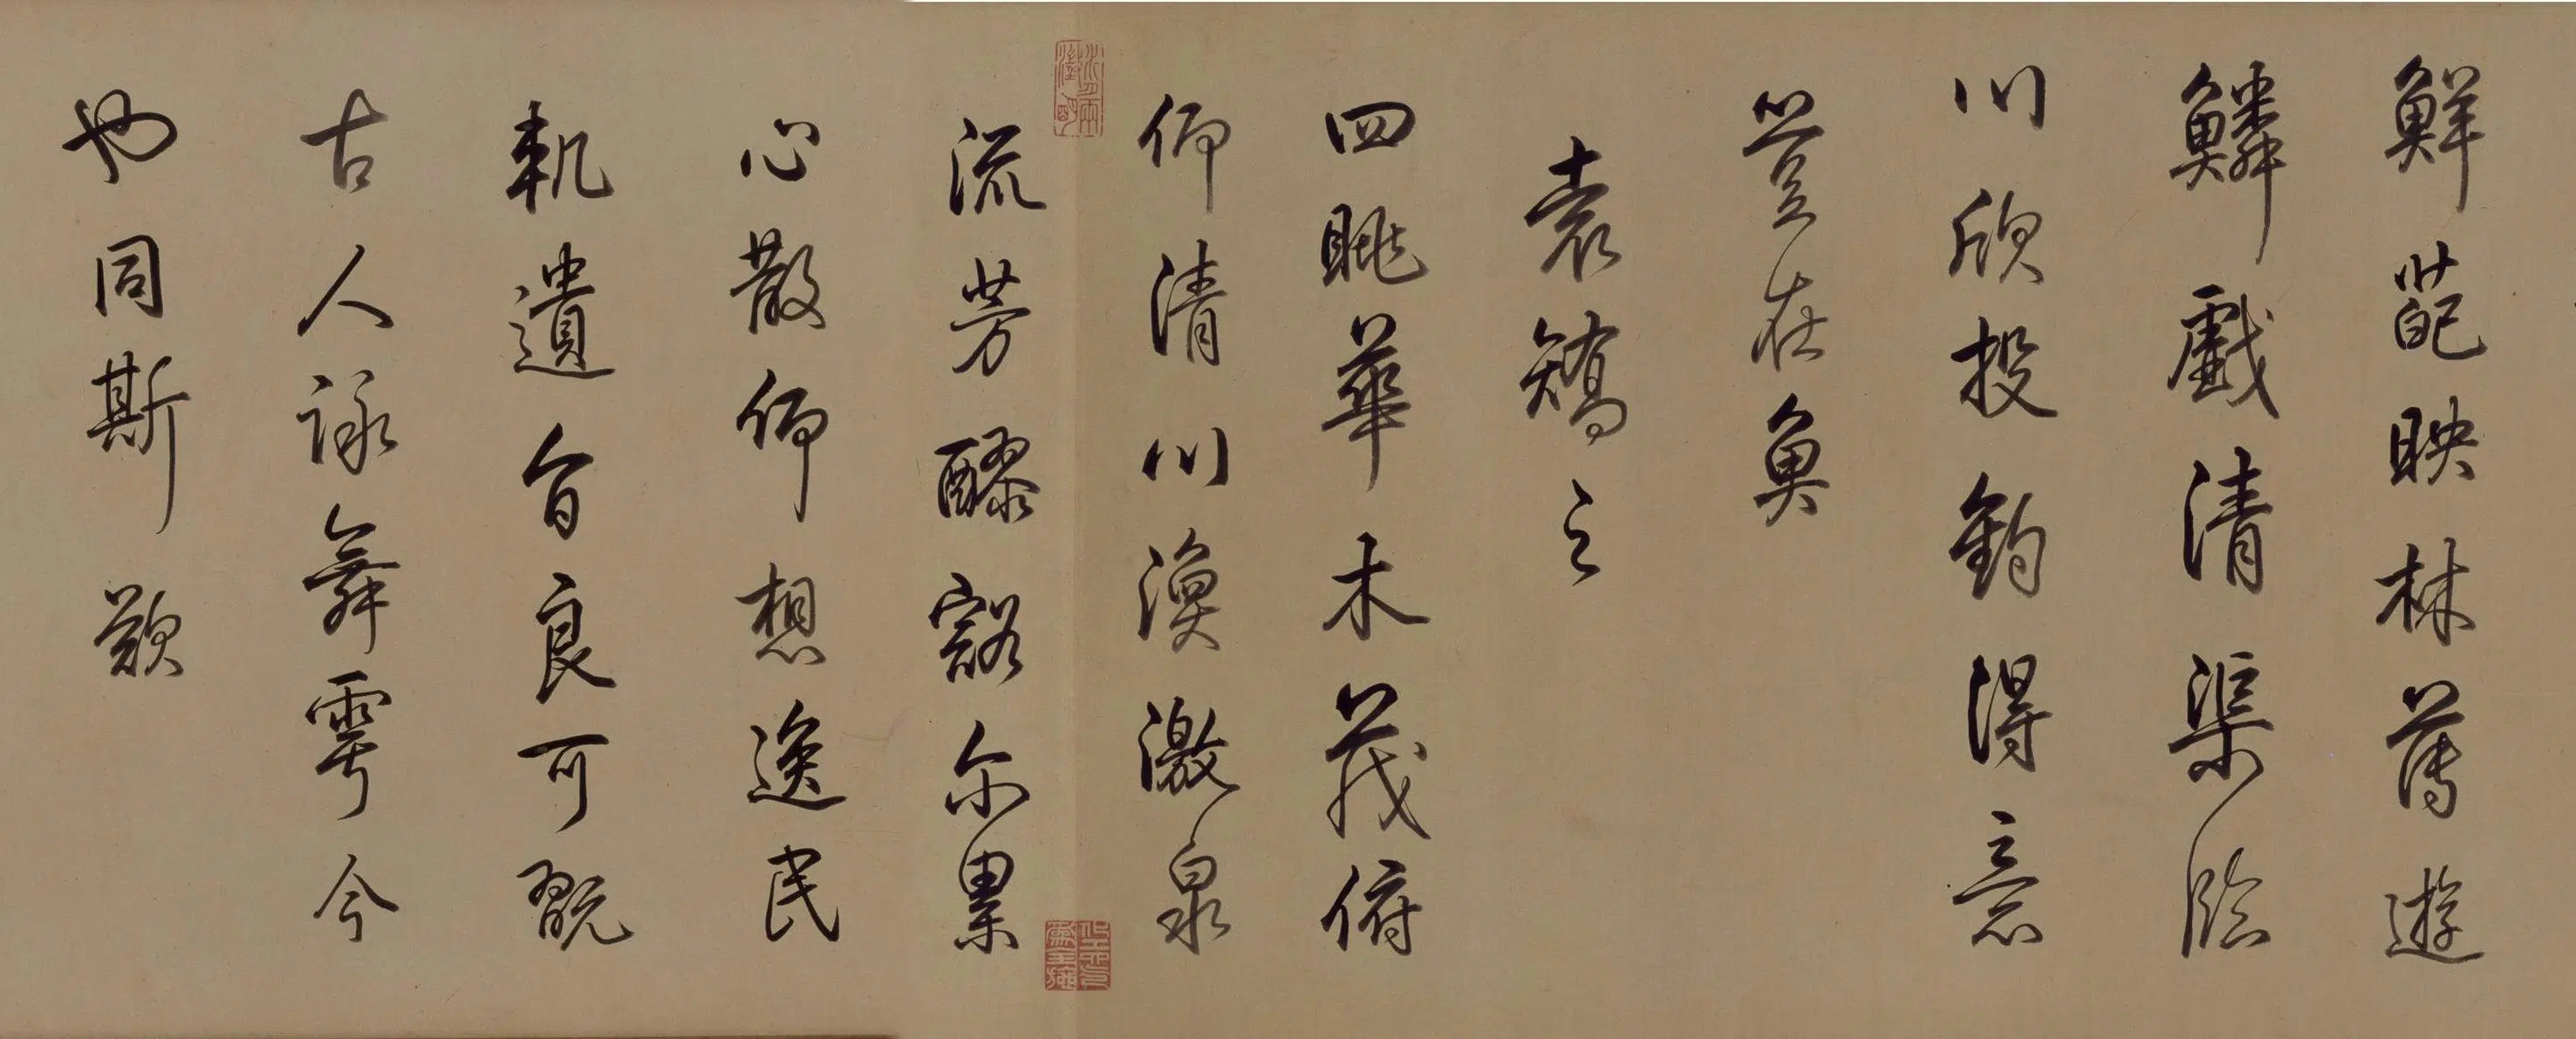 鮮葩映林薄遊
鱗戲清渠臨
川欣投釣得意
豈在魚
袁矯之
四眺華木茂俯
仰清川渙激泉
流芳醪豁尔累
心散仰想逸民
軌遺音良可翫
古人詠舞雩今
也同斯歎